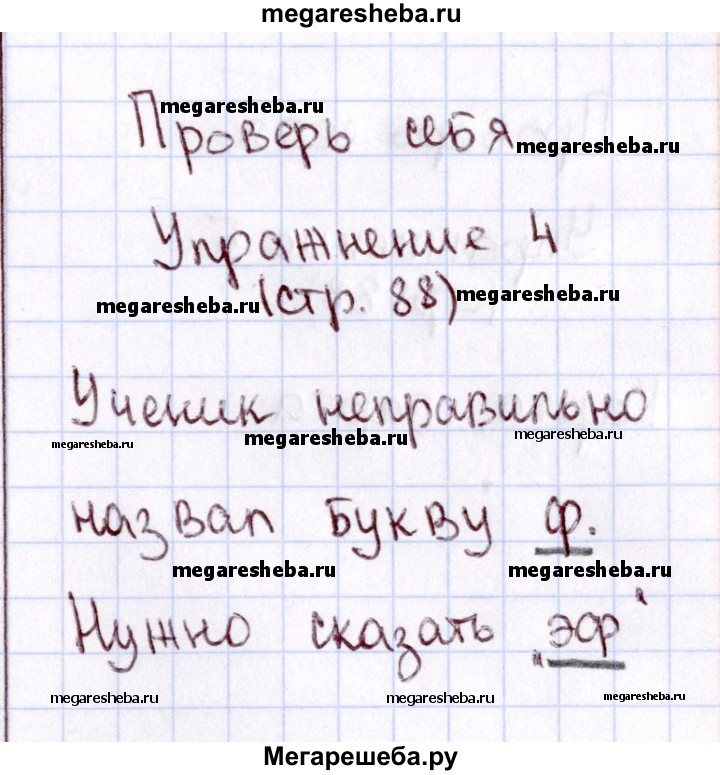 megaresheba.ru
Проверь себя
megaresheba.ru megaresheba.ru
Упражнение 4
(стр. 88)
megaresheba.ru megaresheba.ru
Ученик неправильно
megaresheba.ru megaresheba.ru megaresheba.ru
назвал букву ф.
megaresheba.ru megaresheba.ru
Нужно сказать „эф“
megaresheba.ru megaresheba.ru megaresheba.ru
Мегарешеба.ру